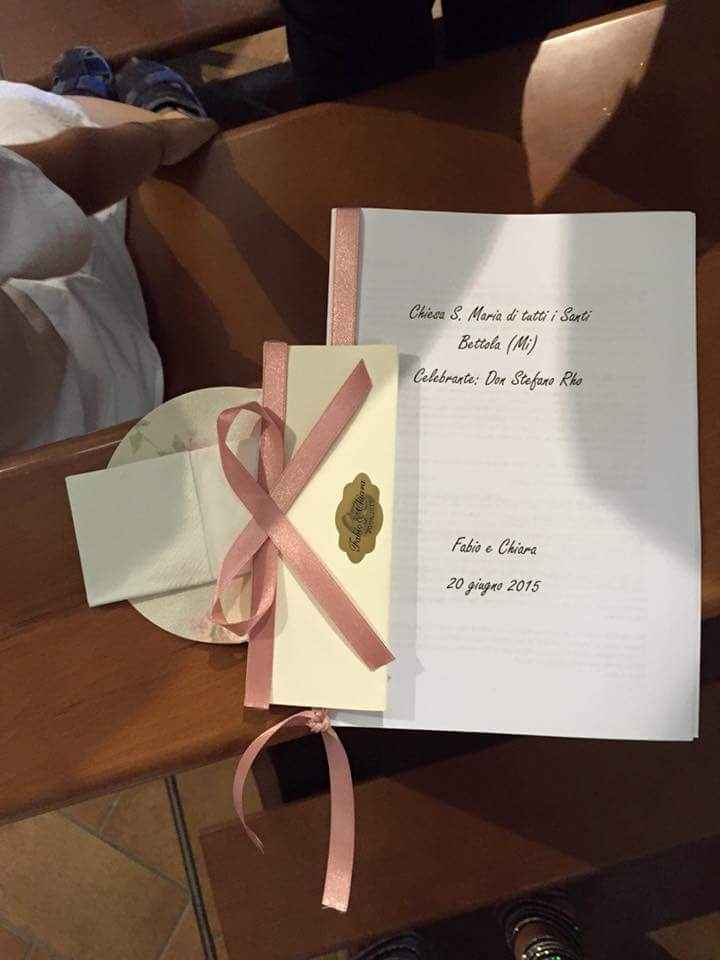 Chiesa S. Maria di tutti i Santi
Bettola (Mi)
Celebrante: Don Stefano Rho
Fabio e Chiara
20 giugno 2015
Fabio & Chiara